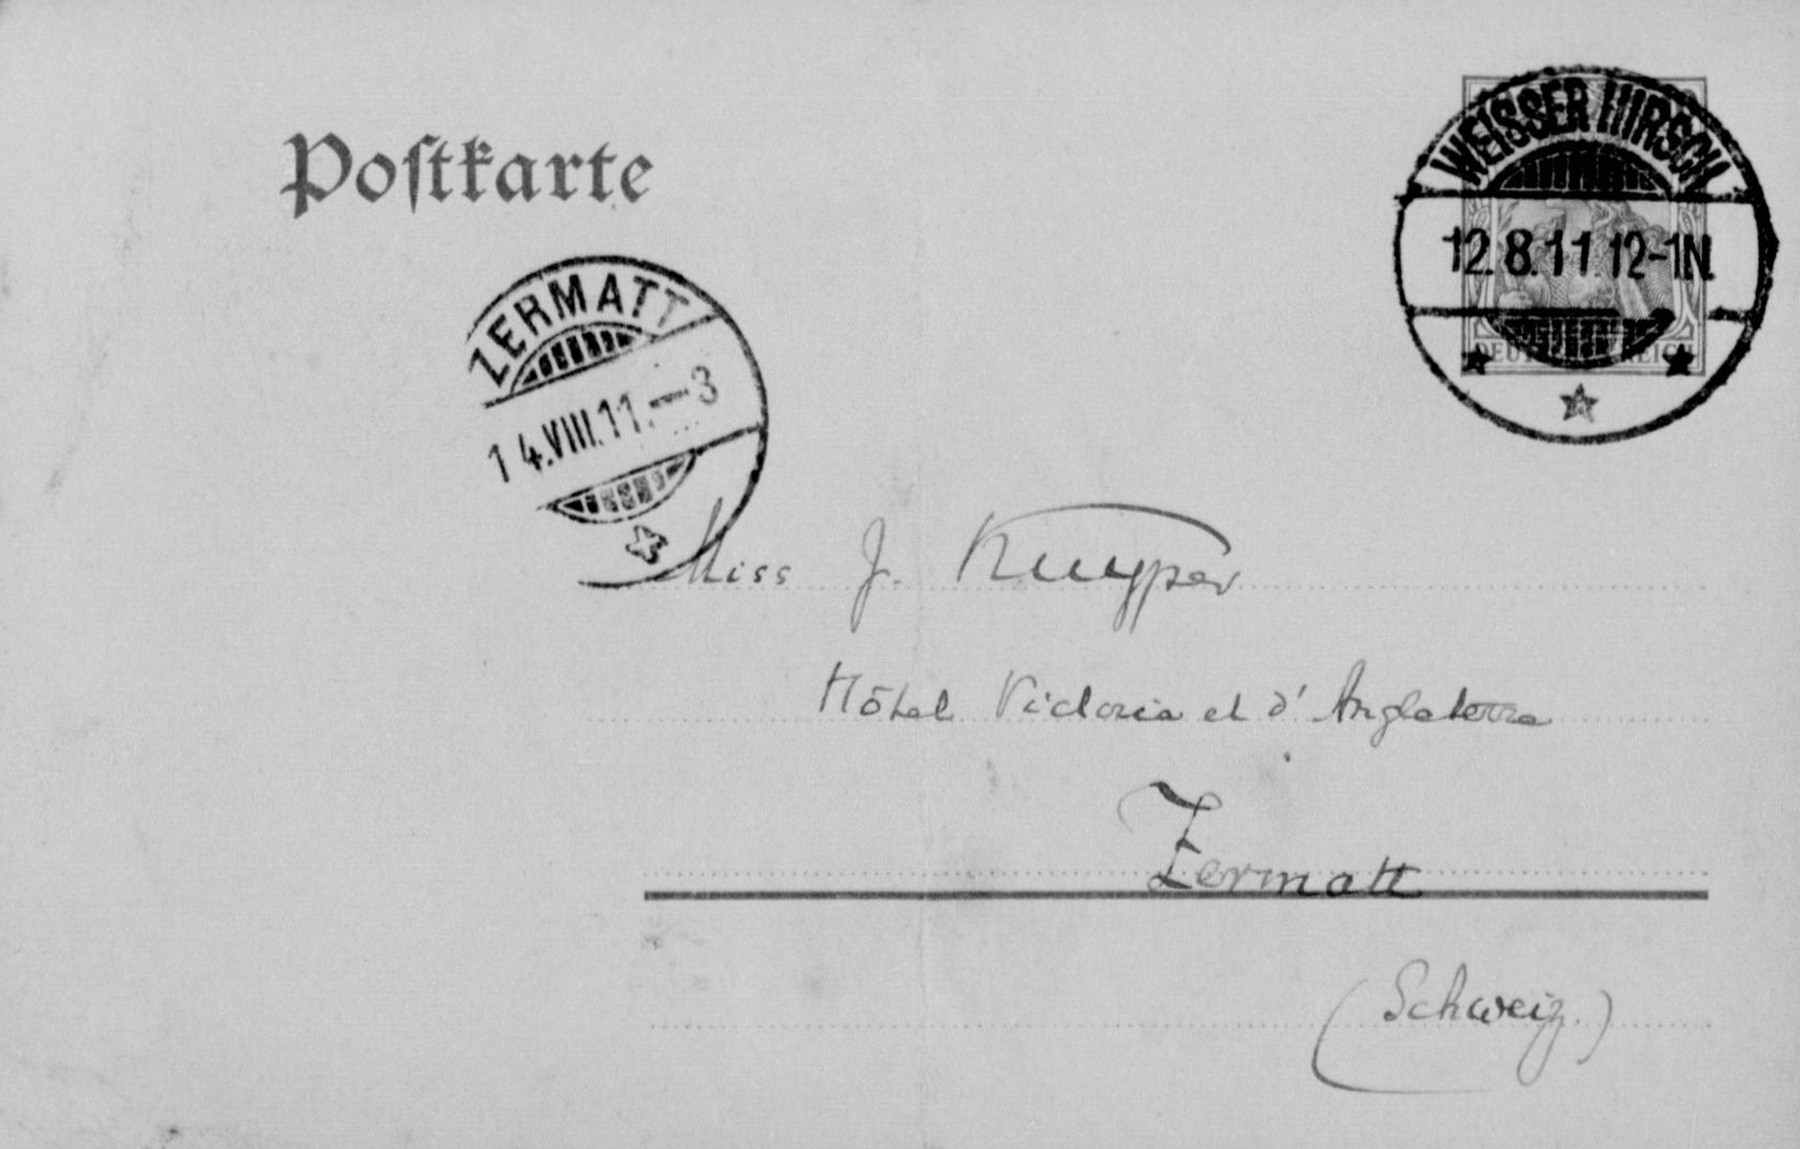 Poſtkarte
WEISSER HIRSCH
12.8.11.12-1N.
DEUTSCHES REICH
ZERMATT
14.VIII.11.-3
Miss J. Kuyper
Hôtel Victoria et d'Angleterre
Zermatt
(Schweiz.)